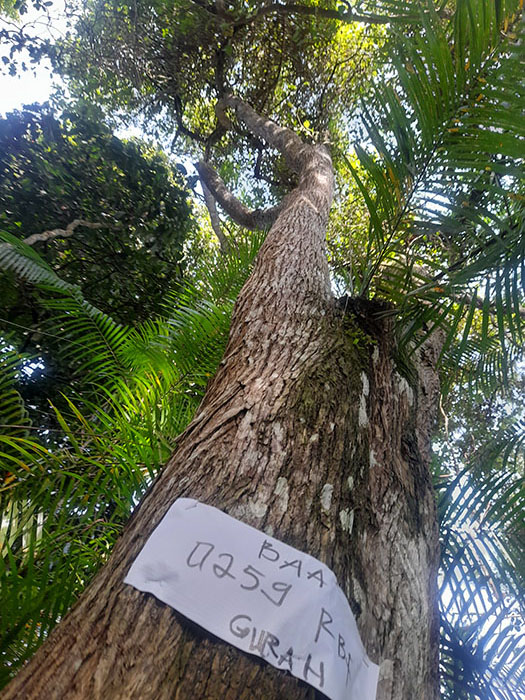 BAA
0259 RBI
GURAH